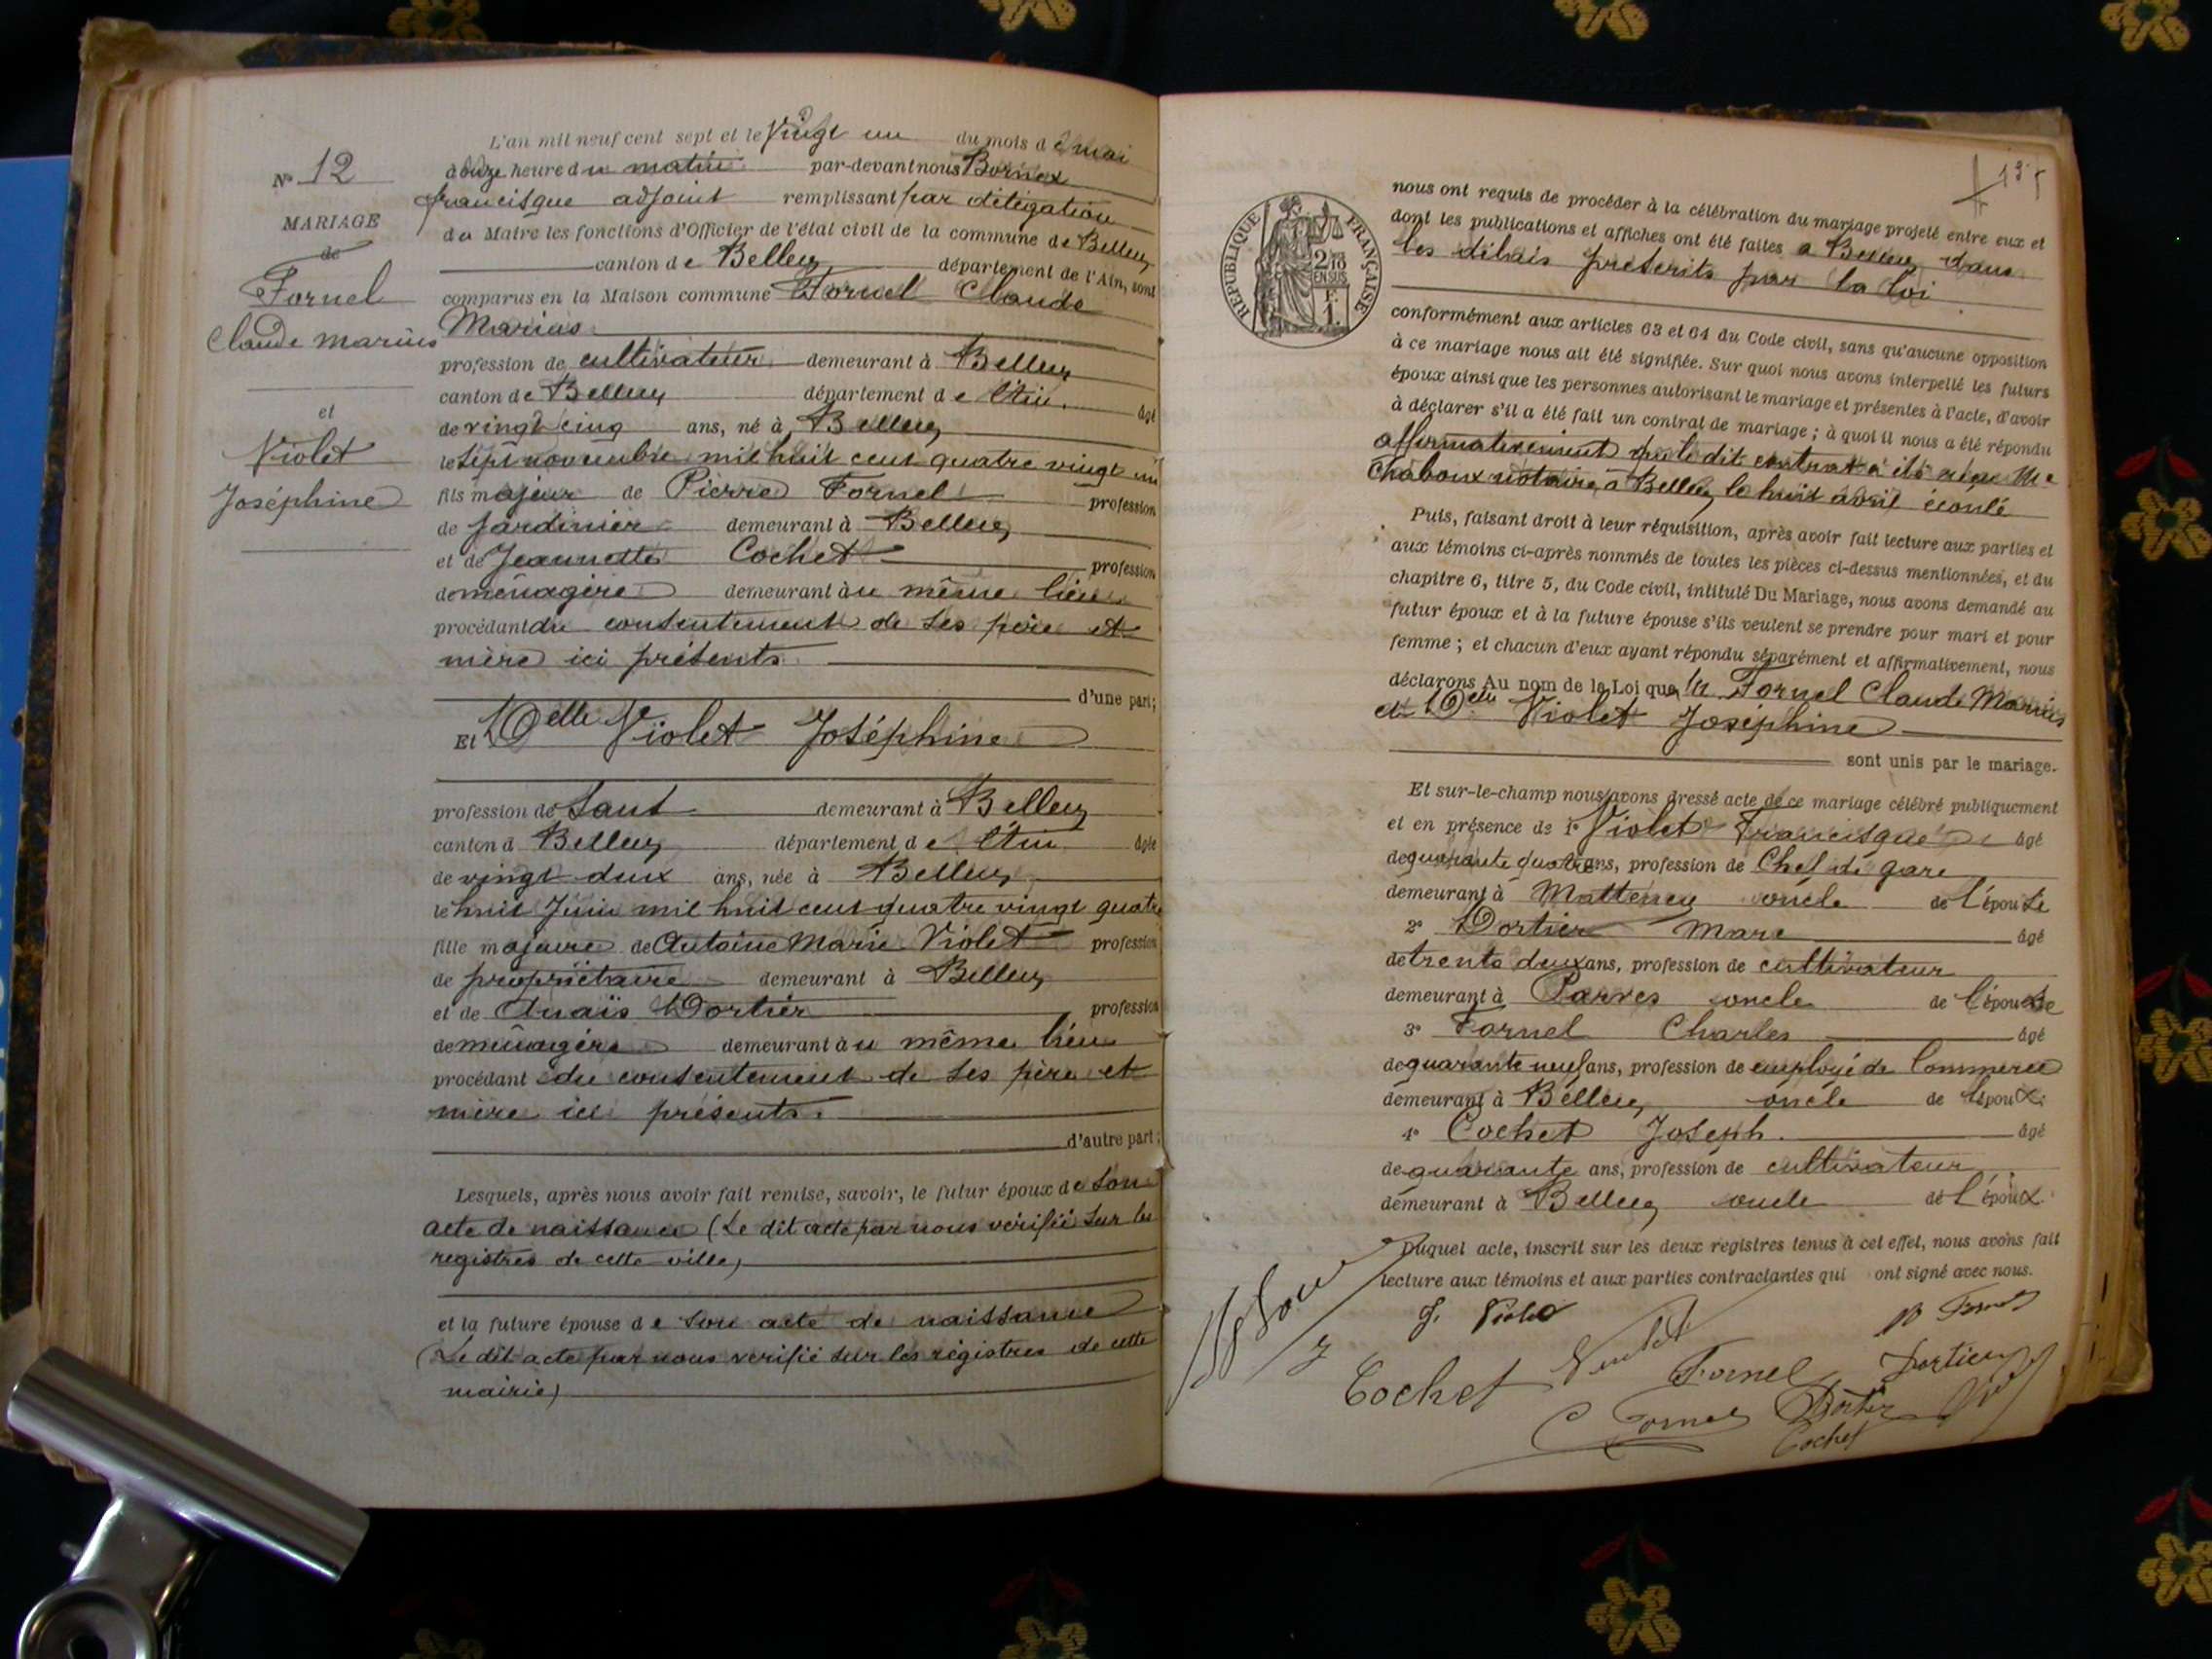 L'an mil neuf cent sept et le Vingt un du mois de mai
à onze heure du matin par-devant nous Bornex
francisque adjoint remplissant par délégation
du Maire les fonctions d'Officier de l'état civil de la commune de Belley
canton de Belley département de l'Ain, sont
comparus en la Maison commune Fornel Claude
Marius
profession de cultivateur demeurant à Belley
canton de Belley département de l'Ain. âgé
de vingt cinq ans, né à Belley
le Sept novembre mil huit cent quatre vingt un
fils majeur de Pierre Fornel profession
de Jardinier demeurant à Belley
et de Jeannette Cochet profession
de ménagère demeurant àu même lieu
procédant du consentement de ses père et
mère ici présents.
d'une part;
Et Delle Violet Joséphine
profession de Sans demeurant à Belley
canton d Belley département de l'Ain âgée
de vingt deux ans, née à Belley
le huit Juin mil huit cent quatre vingt quatre
fille majeure de Antoine Marie Violet profession
de propriétaire demeurant à Belley
et de Anaïs Dortier profession
de ménagère demeurant àu même lieu
procédant du consentement de ses père et
mère ici présents.
d'autre part;
Lesquels, après nous avoir fait remise, savoir, le futur époux de son
acte de naissance (Le dit acte par nous vérifié sur les
registres de cette ville)
et la future épouse de son acte de naissance
(Le dit acte par nous vérifié sur les régistres de cette
mairie)
N° 12
MARIAGE
de
Fornel
Claude Marius
et
Violet
Joséphine
135
RÉPUBLIQUE FRANÇAISE
2/10
EN SUS
F.
1.
nous ont requis de procéder à la célébration du mariage projeté entre eux et
dont les publications et affiches ont été faites à Belley dans
les délais préscrits par la loi
conformément aux articles 63 et 64 du Code civil, sans qu'aucune opposition
à ce mariage nous ait été signifiée. Sur quoi nous avons interpellé les futurs
époux ainsi que les personnes autorisant le mariage et présentes à l'acte, d'avoir
à déclarer s'il a été fait un contrat de mariage; à quoi il nous a été répondu
affirmativement que le dit contrat a été reçu Me
Chaboux notaire à Belley le huit avril écoulé
Puis, faisant droit à leur réquisition, après avoir fait lecture aux parties et
aux témoins ci-après nommés de toutes les pièces ci-dessus mentionnées, et du
chapitre 6, titre 5, du Code civil, intitulé Du Mariage, nous avons demandé au
futur époux et à la future épouse s'ils veulent se prendre pour mari et pour
femme; et chacun d'eux ayant répondu séparément et affirmativement, nous
déclarons Au nom de la Loi que Mr Fornel Claude Marius
et Delle Violet Joséphine
sont unis par le mariage.
Et sur-le-champ nous avons dressé acte de ce mariage célébré publiquement
et en présence de 1° Violet Francisque âgé
de quarante quatre ans, profession de Chef de gare
demeurant à oncle de l'épouse
2° Dortier Marc âgé
de trente deux ans, profession de cultivateur
demeurant à Parves oncle de l'épouse
3° Fornel Charles âgé
de quarante neuf ans, profession de employé de Commerce
demeurant à Belley oncle de l'époux
4° Cochet Joseph. âgé
de quarante ans, profession de cultivateur
demeurant à Belley oncle de l'époux
Duquel acte, inscrit sur les deux registres tenus à cet effet, nous avons fait
lecture aux témoins et aux parties contractantes qui ont signé avec nous.
J. Violet
Fornel
Cochet Violet Fornel Dortier
C Fornel Dortier
Cochet